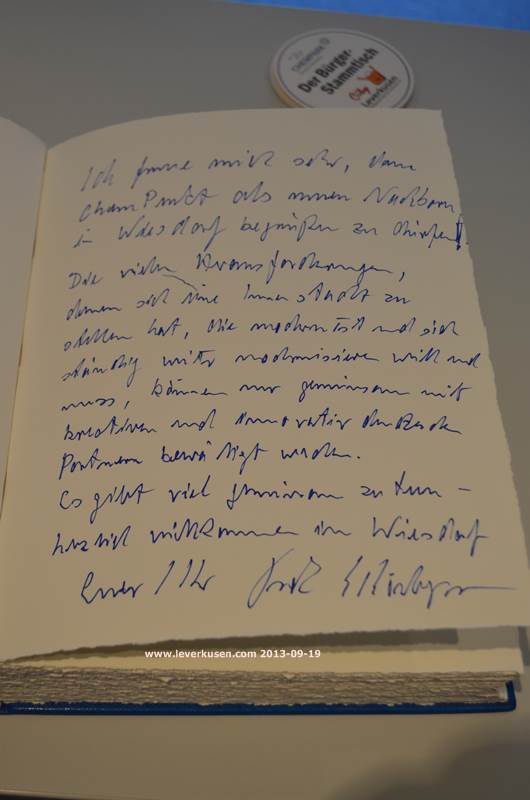 CHEMPUNKT
Der Bürger-
Stammtisch
City
Leverkusen
Ich freue mich sehr, dem
ChemPunkt als neuen Nachbarn
in Wiesdorf begrüßen zu dürfen!
Die vielen Herausforderungen,
denen sich eine Innenstadt zu
stellen hat, die modern ist und sich
ständig weiter modernisieren will und
muss, können nur gemeinsam mit
kreativen und innovativ denkenden
Partnern bewältigt werden.
Es gibt viel gemeinsam zu tun –
herzlich willkommen in Wiesdorf
Euer / Ihr
www.leverkusen.com 2013-09-19